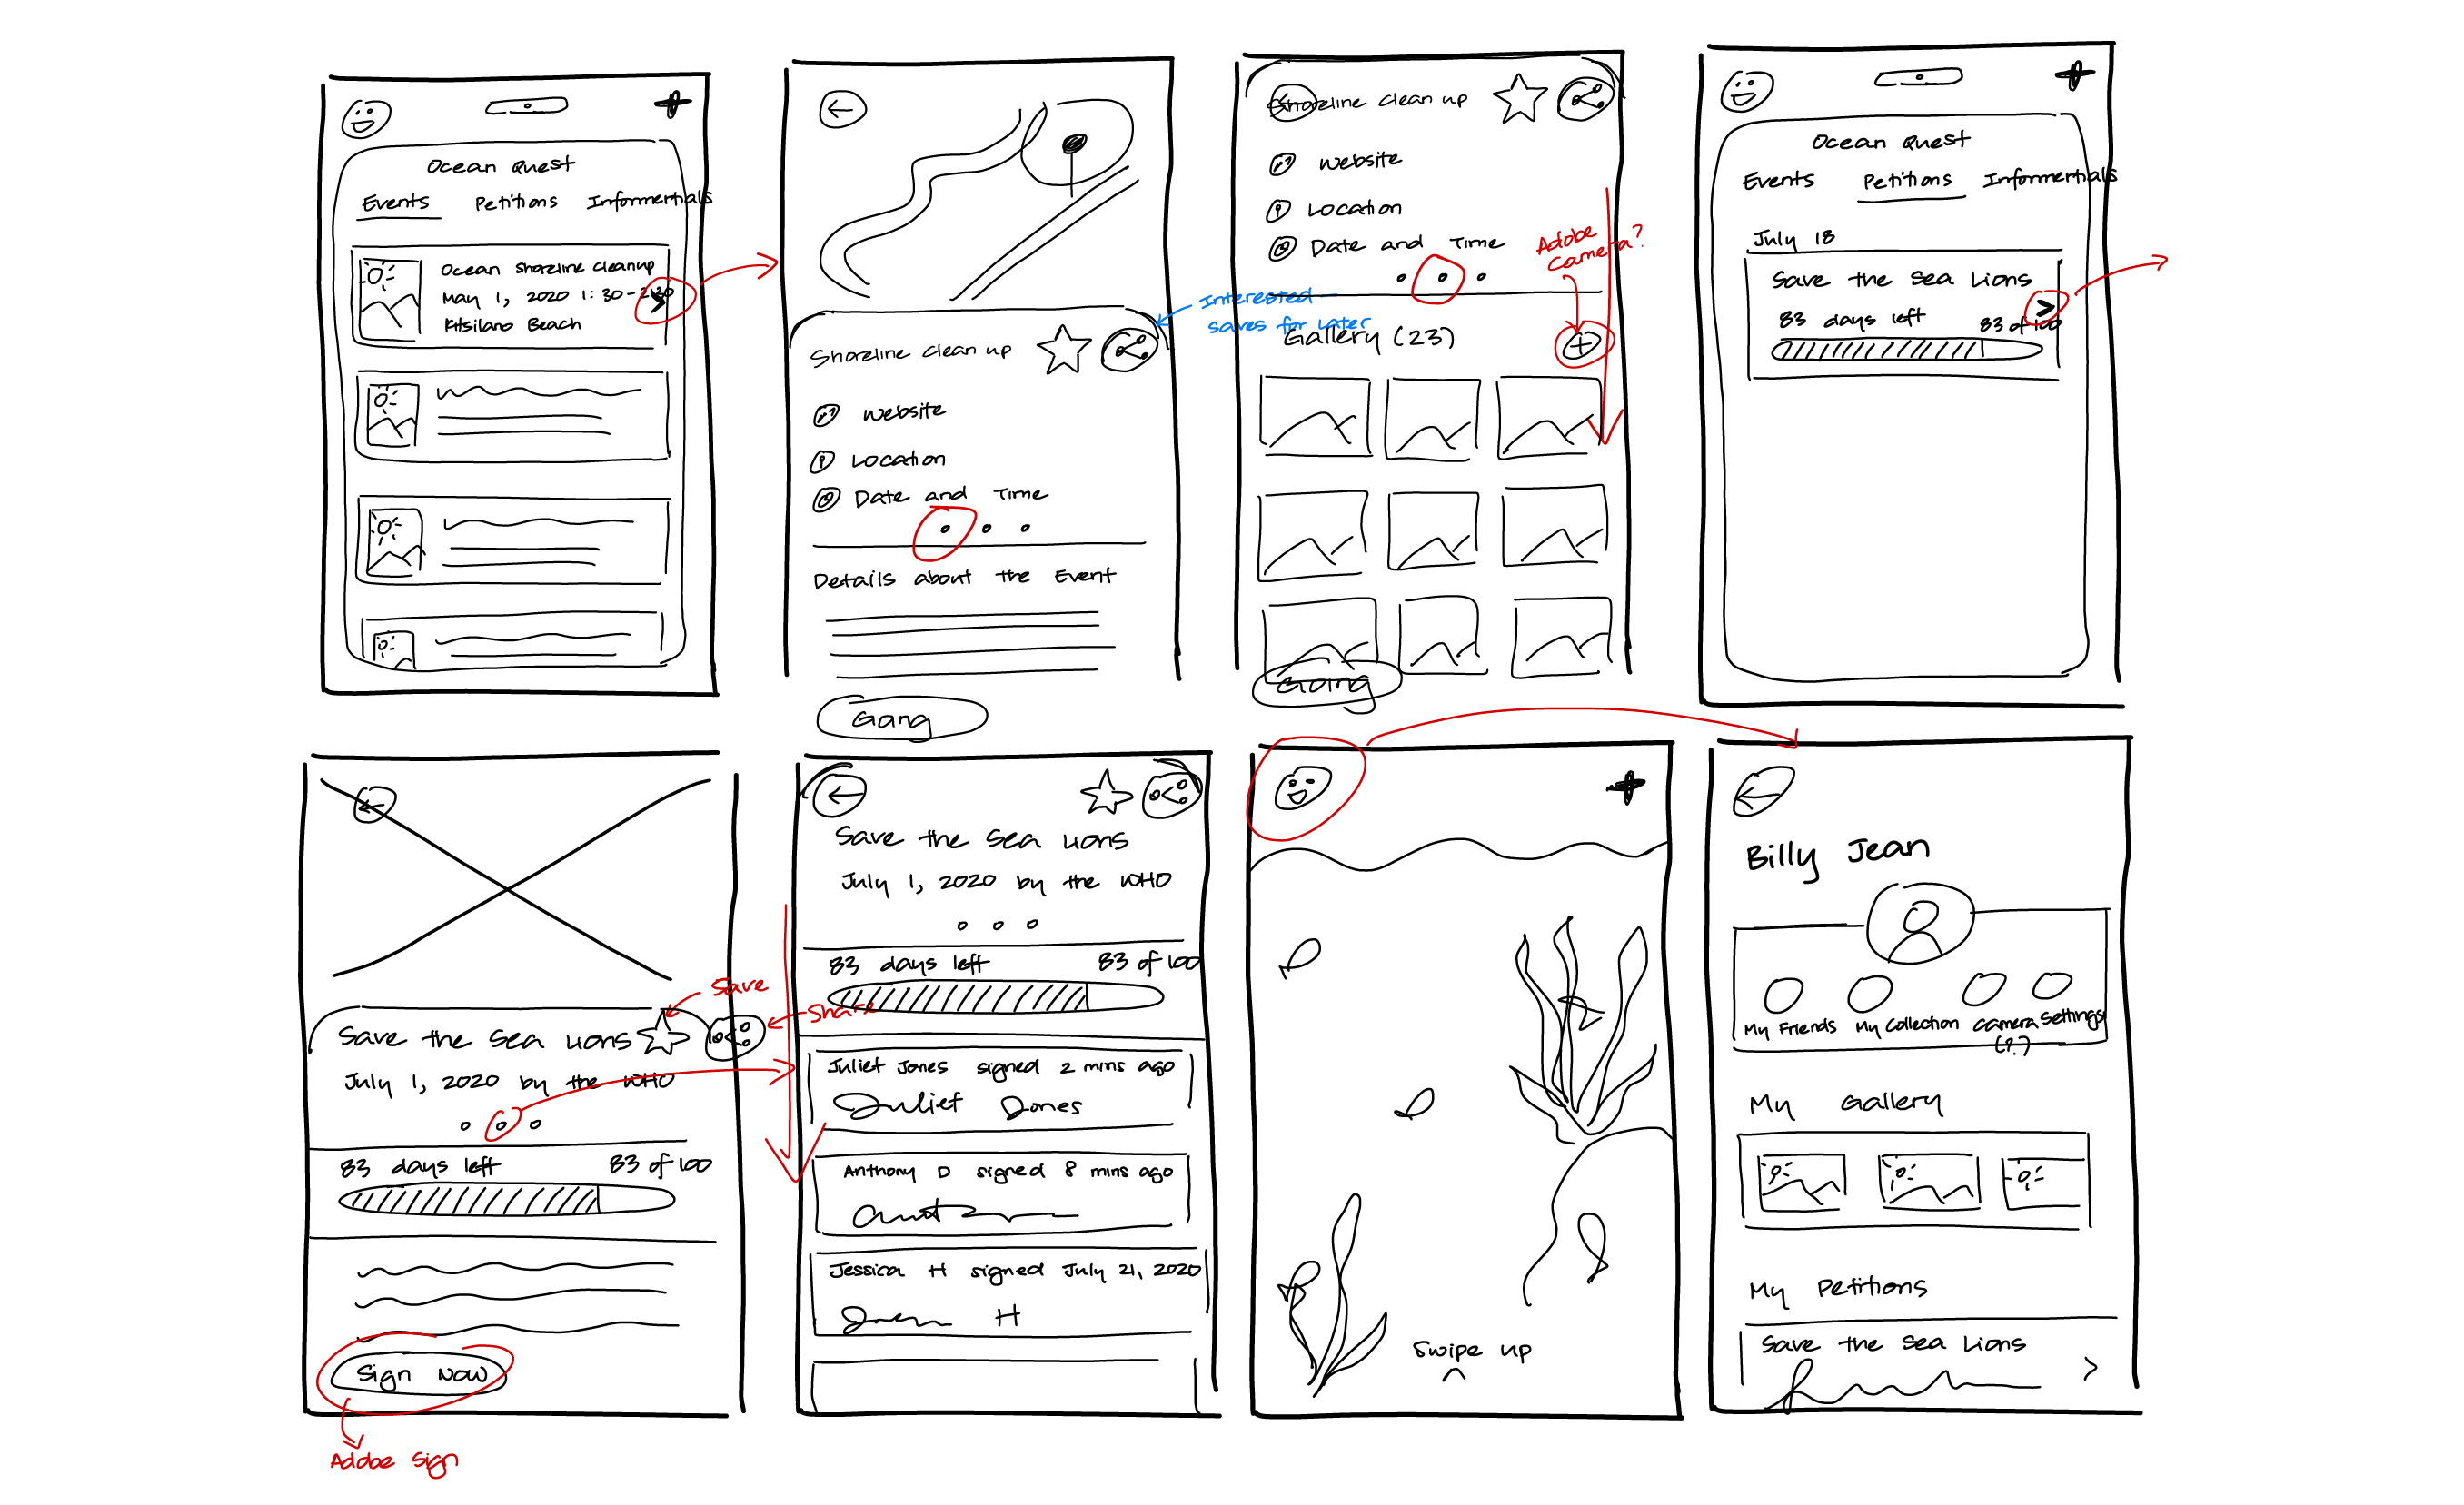 Ocean Quest
Events Petitions Informertials
Ocean Shoreline Cleanup
May 1, 2020 1:30-2:30
Kitsilano Beach
Shoreline Clean up
Website
Location
Date and Time
Details about the Event
Going
Interested
saves for later
Shoreline Clean up
Website
Location
Date and Time
Adobe
Camera?
Gallery (23)
Going
Ocean Quest
Events Petitions Informertials
July 18
Save the Sea Lions
83 days left 83 of 100
Save the Sea Lions
Save
Share
July 1, 2020 by the WHO
83 days left 83 of 100
Sign Now
Adobe Sign
Save the Sea Lions
July 1, 2020 by the WHO
83 days left 83 of 100
Juliet Jones signed 2 mins ago
Juliet Jones
Anthony D signed 8 mins ago
Jessica H signed July 21, 2020
H
Swipe up
Billy Jean
My Friends My Collection Camera Settings
(??)
My Gallery
My Petitions
Save the Sea Lions